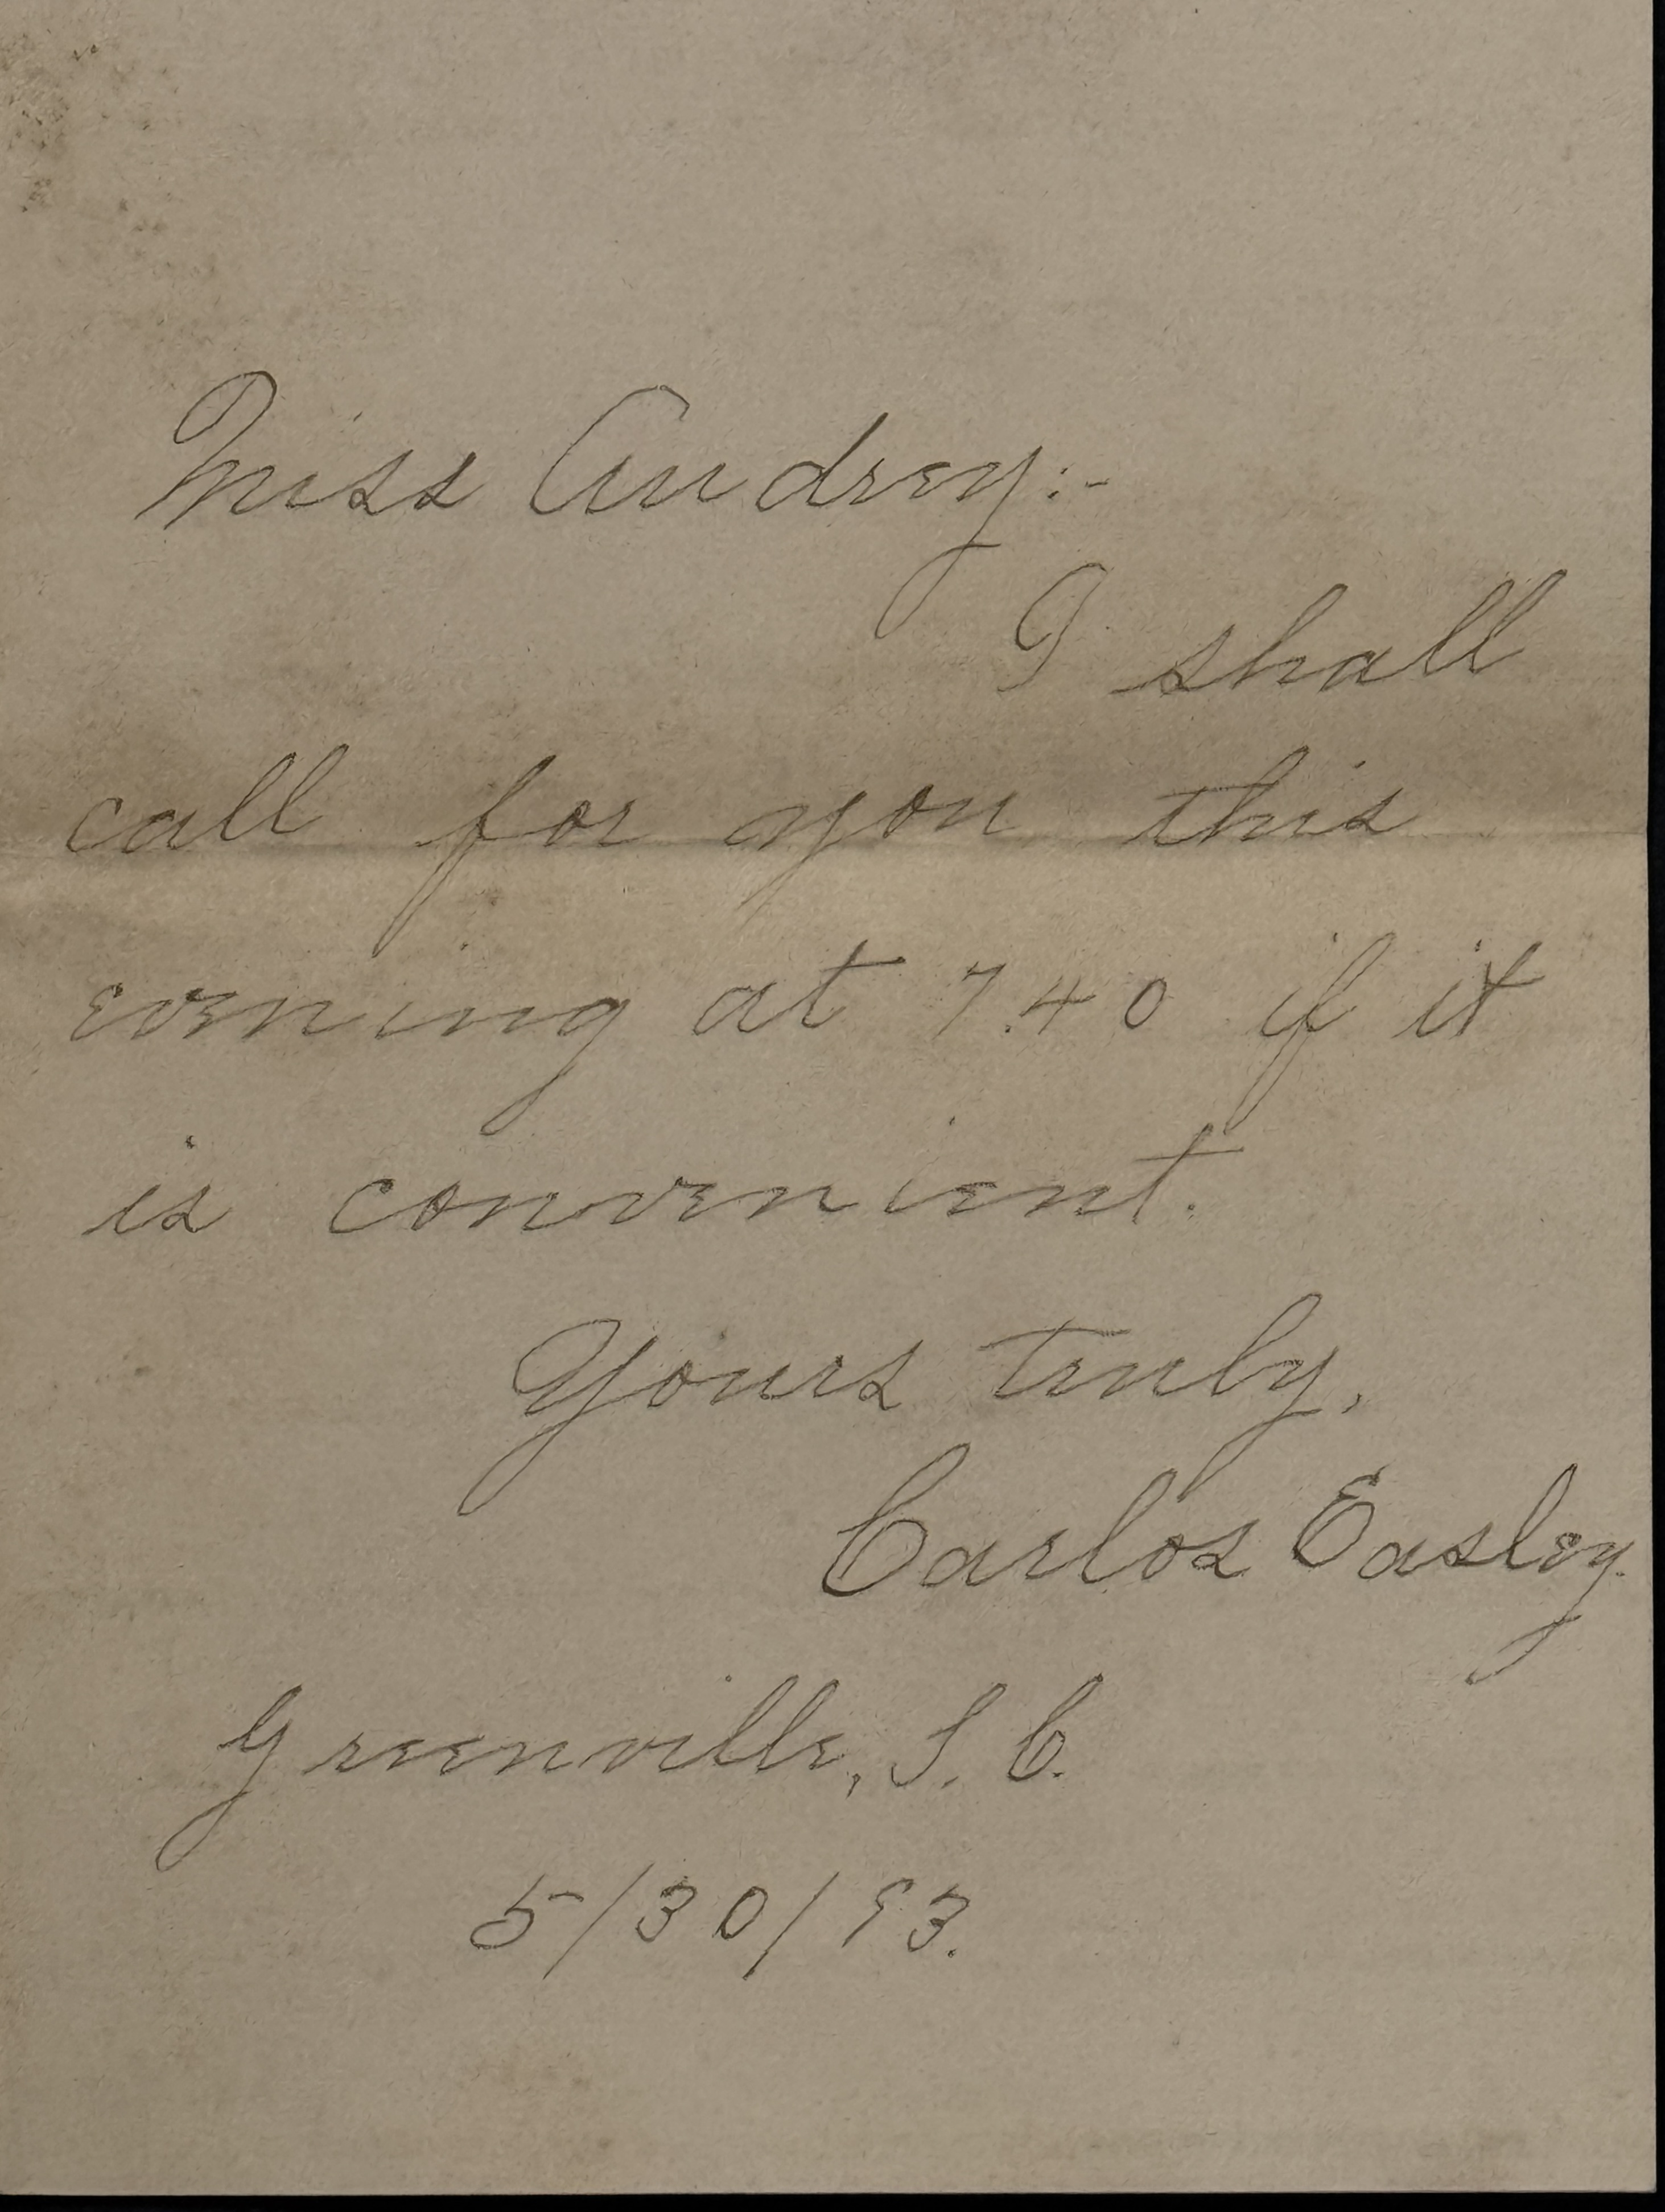 Miss Audrey:-
I shall
call for you this
evening at 7.40 if it
is convenient.
Yours truly,
Carlos Easley.
Greenville, S. C.
5/30/93.